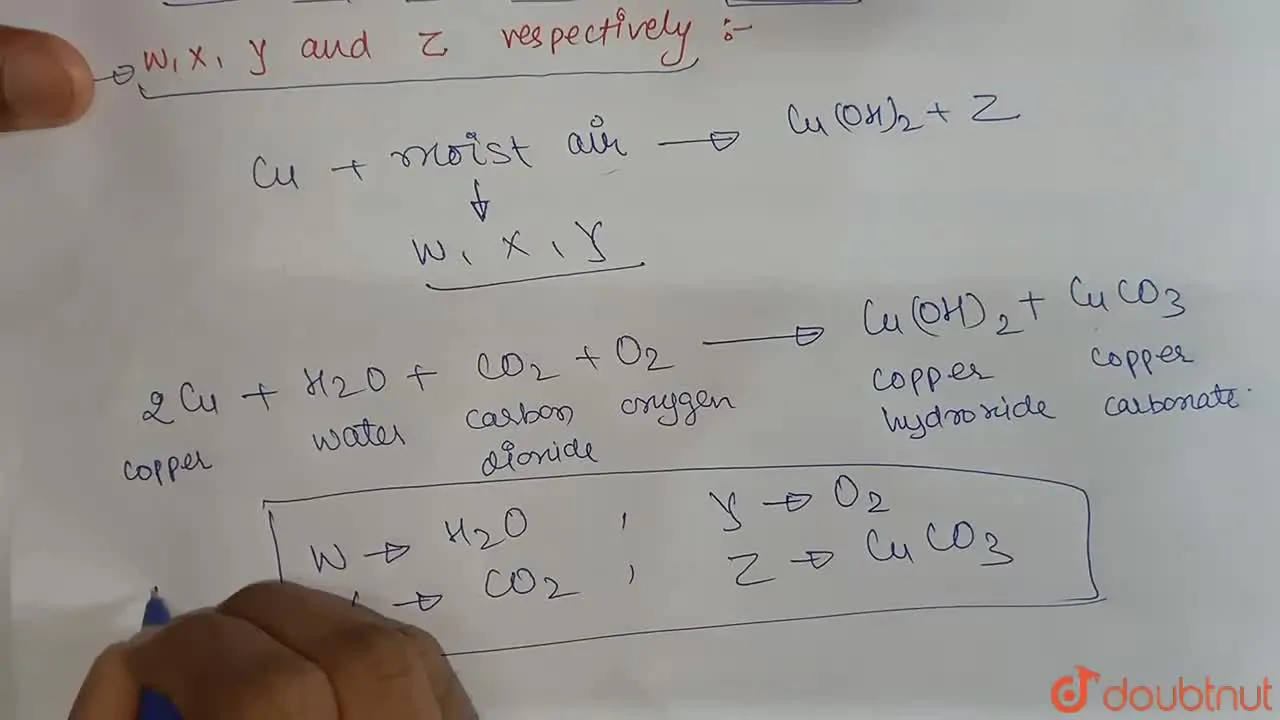 W, X, Y and Z respectively :-
Cu + moist air → Cu(OH)2 + Z
W, X, Y
2Cu + H2O + CO2 + O2 → Cu(OH)2 + CuCO3
copper water carbon dioxide oxygen copper hydroxide copper carbonate.
W → H2O , Y → O2
→ CO2 , Z → CuCO3
doubtnut